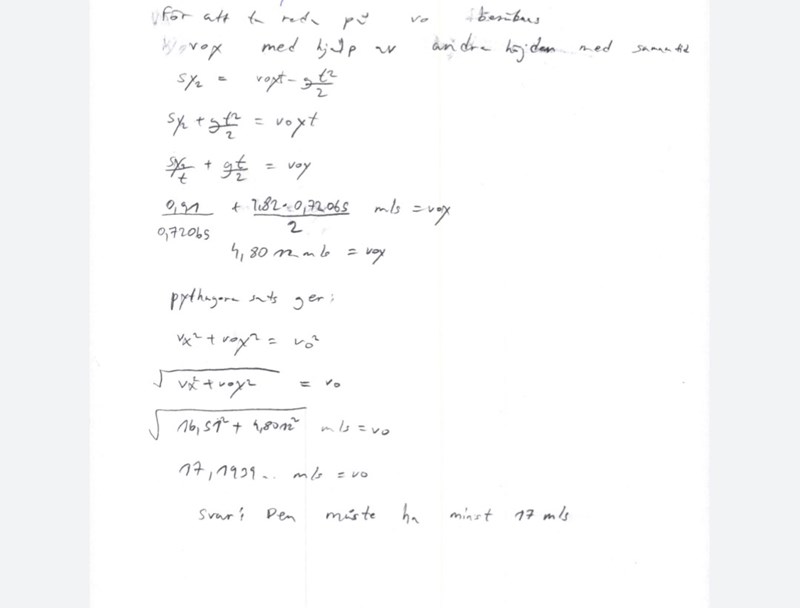 För att ta reda på v0 beräknas
v0y med hjälp av andra höjden med samma tid
sy2 = v0yt - gt²/2
sy2 + gt²/2 = v0yt
sy2/t + gt/2 = v0y
0,91/0,72065 + 9,82·0,72065/2 m/s = v0y
4,8012 m/s = v0y
pythagora sats ger:
vx² + v0y² = v0²
√(vx² + v0y²) = v0
√(16,51² + 4,8012²) m/s = v0
17,1939.. m/s = v0
svar: Den måste ha minst 17 m/s